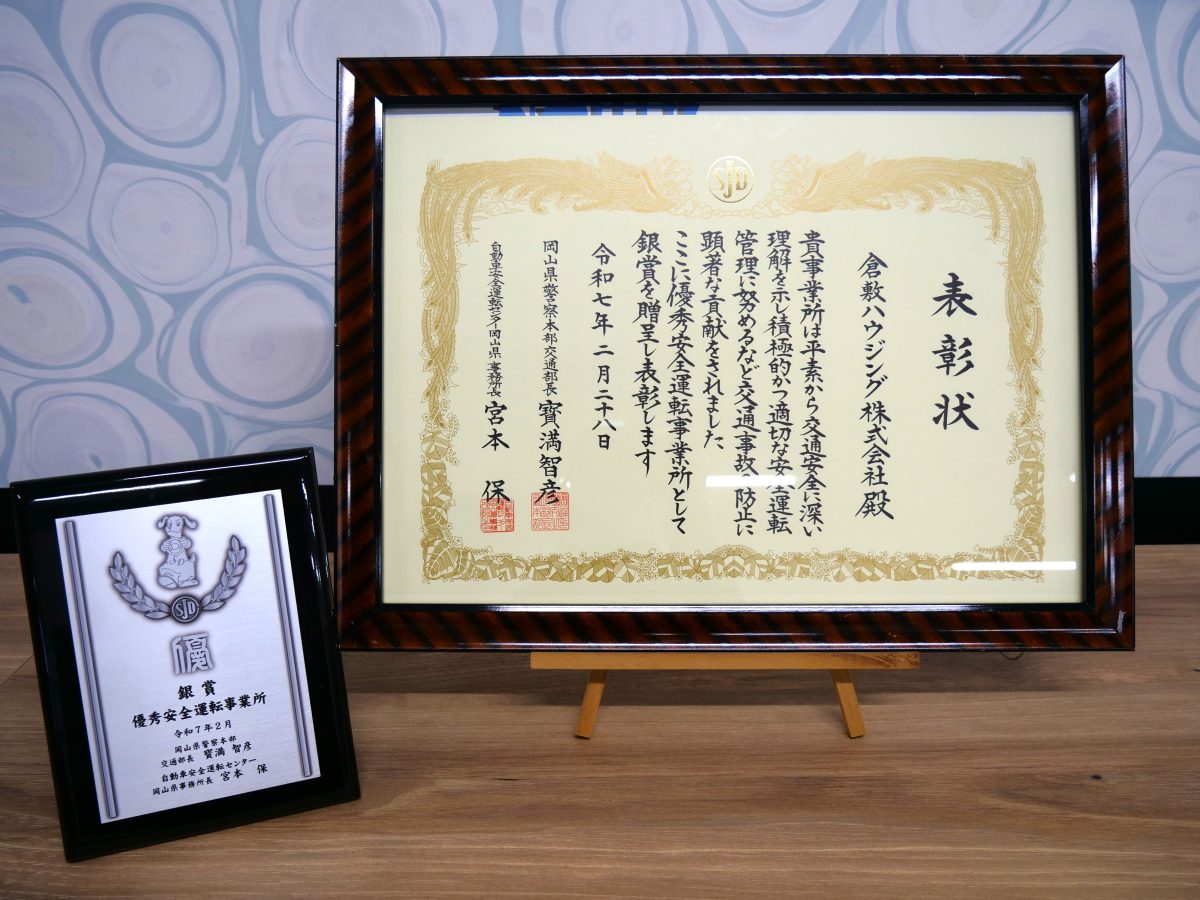 SJD
表彰状
倉敷ハウジング株式会社殿
貴事業所は平素から交通安全に深い
理解を示し積極的かつ適切な安全運転
管理に努めるなど交通事故の防止に
顕著な貢献をされました
ここに優秀安全運転事業所として
銀賞を贈呈し表彰します
令和七年二月二十八日
岡山県警察本部交通部長 寳満智彦
自動車安全運転センター岡山県事務所長 宮本 保
SJD
優
銀賞
優秀安全運転事業所
令和7年2月
岡山県警察本部
交通部長 寳満 智彦
自動車安全運転センター
岡山県事務所長 宮本 保